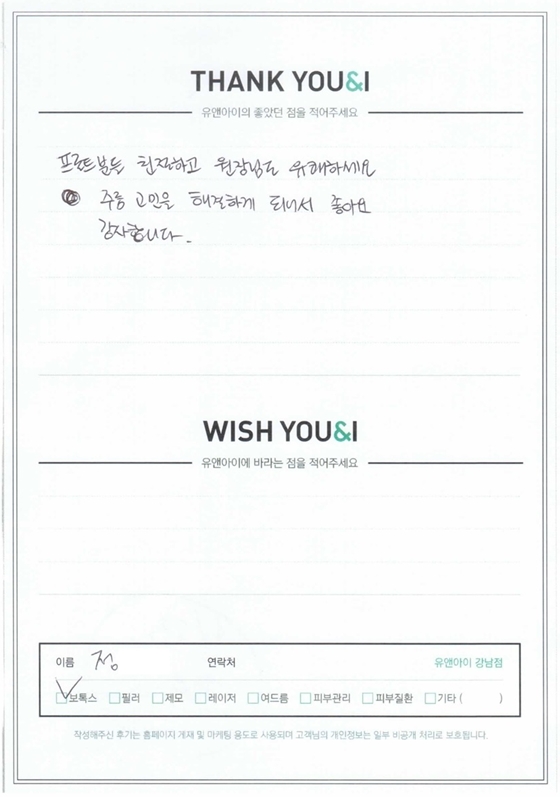 THANK YOU&I
유앤아이의 좋았던 점을 적어주세요
프론트분들 친절하고 원장님도 유쾌하세요
주름 고민을 해결하게 되니서 좋아요
감사합니다.
WISH YOU&I
유앤아이에 바라는 점을 적어주세요
이름 정 연락처 유앤아이 강남점
보톡스 필러 제모 레이저 여드름 피부관리 피부질환 기타 ( )
작성해주신 후기는 홈페이지 게재 및 마케팅 용도로 사용되며 고객님의 개인정보는 일부 비공개 처리로 보호됩니다.